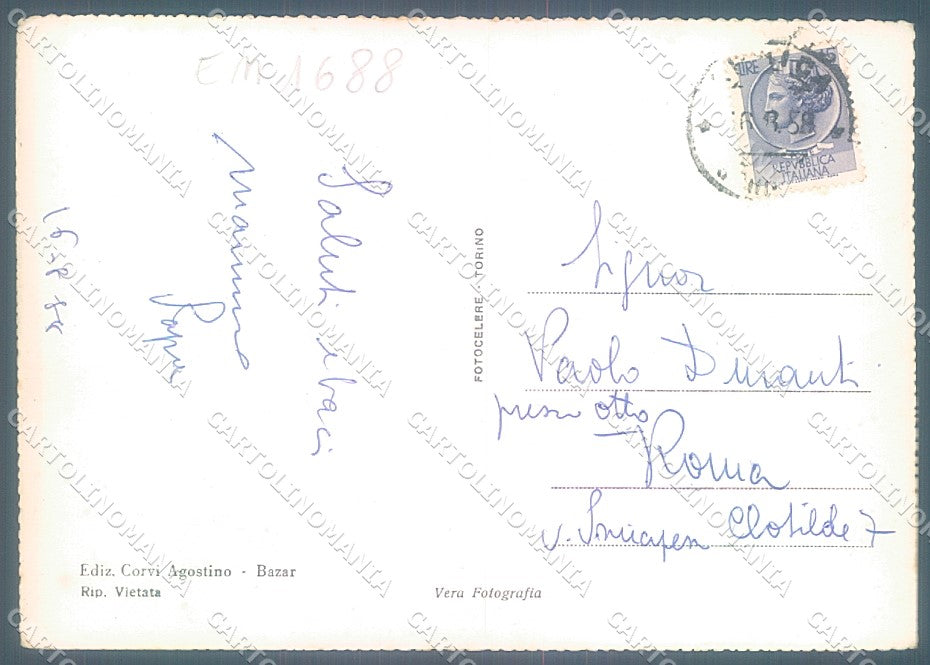 EM1688
Saluti e baci
Mamma
Papà
16-8-58
LIRE 15
REPVBBLICA
ITALIANA
FOTOCELERE - TORINO
Signor
Paolo Duranti
presso Otto
Roma
v. Principessa Clotilde 7
Ediz. Corvi Agostino - Bazar
Rip. Vietata
Vera Fotografia
CARTOLINOMANIA